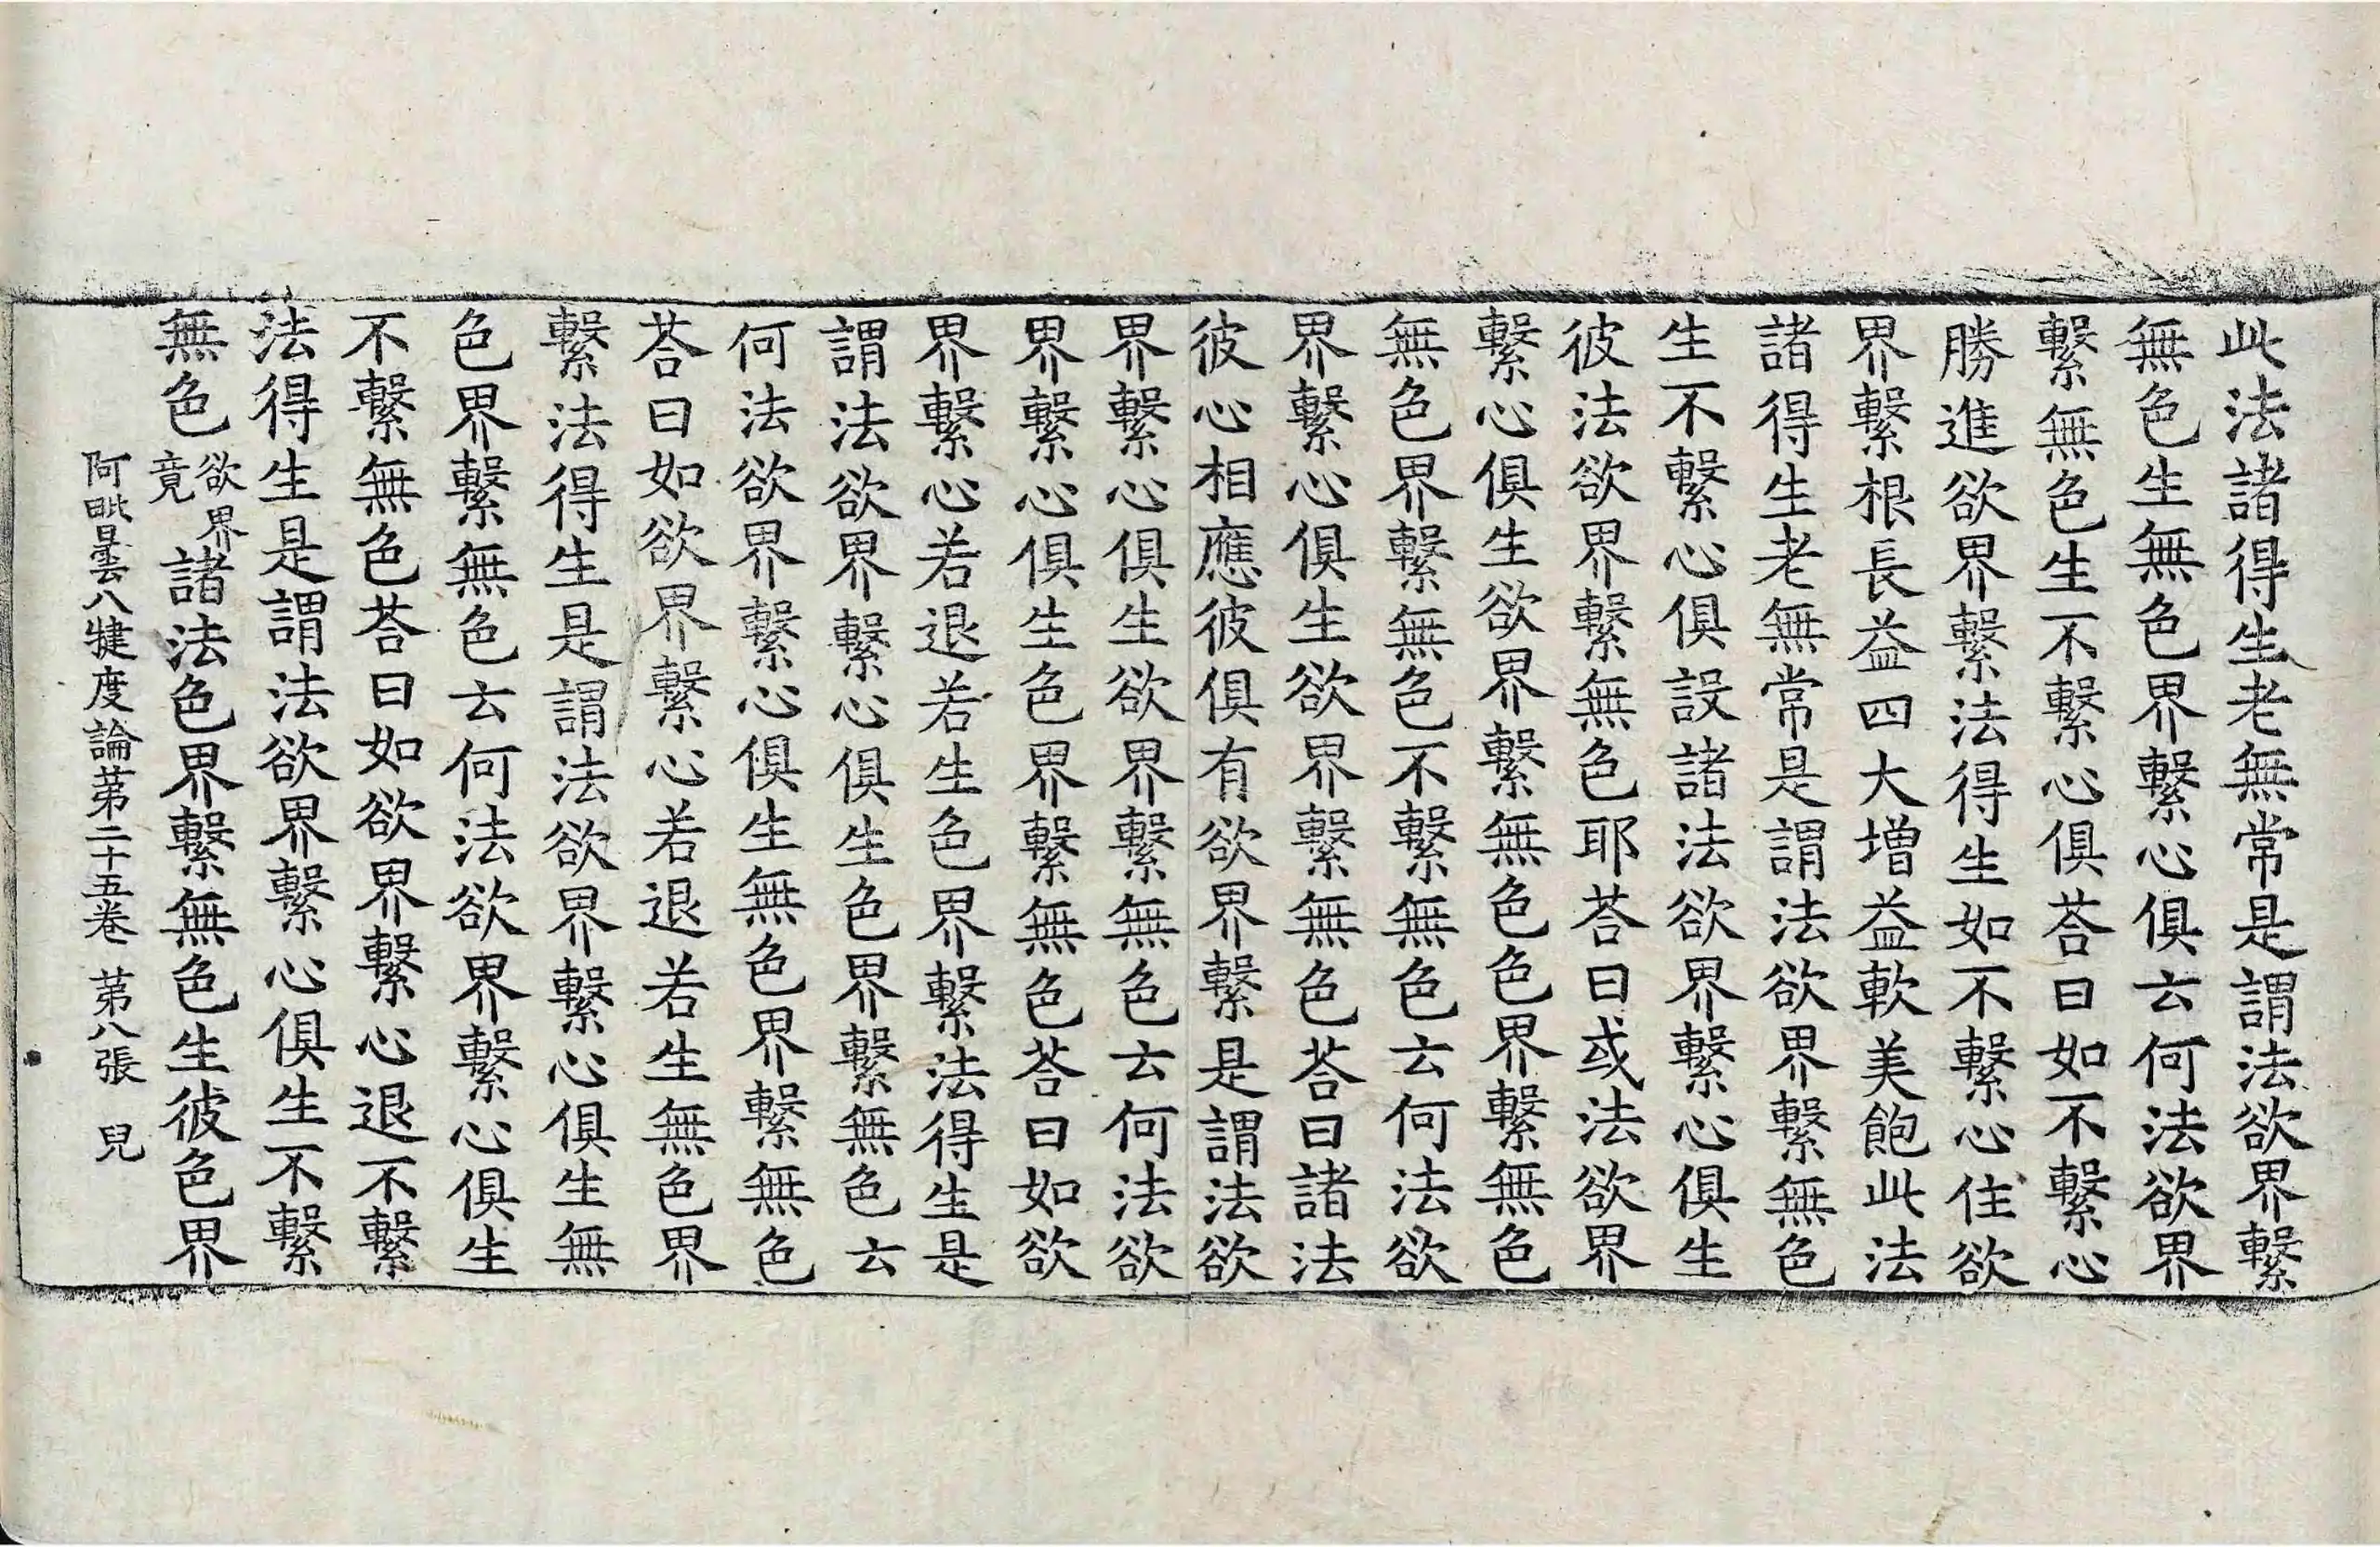 此法諸得生老無常是謂法欲界繫
無色生無色界繫心俱云何法欲界
繫無色生不繫心俱荅曰如不繫心
勝進欲界繫法得生如不繫心住欲
界繫根長益四大增益軟美飽此法
諸得生老無常是謂法欲界繫無色
生不繫心俱設諸法欲界繫心俱生
彼法欲界繫無色耶荅曰或法欲界
繫心俱生欲界繫無色色界繫無色
無色界繫無色不繫無色云何法欲
界繫心俱生欲界繫無色荅曰諸法
彼心相應彼俱有欲界繫是謂法欲
界繫心俱生欲界繫無色云何法欲
界繫心俱生色界繫無色荅曰如欲
界繫心若退若生色界繫法得生是
謂法欲界繫心俱生色界繫無色云
何法欲界繫心俱生無色界繫無色
荅曰如欲界繫心若退若生無色界
繫法得生是謂法欲界繫心俱生無
色界繫無色云何法欲界繫心俱生
不繫無色荅曰如欲界繫心退不繫
法得生是謂法欲界繫心俱生不繫
無色欲界竟諸法色界繫無色生彼色界
阿毗曇八犍度論苐二十五卷 苐八張 兒